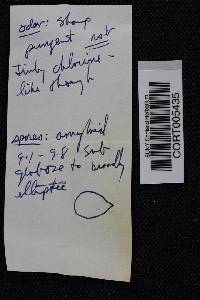 odor: sharp
pungent not
chlorine-
like though
spores: amyloid
9.1 - 9.8 sub
globose to broadly
elliptic
CORT005435